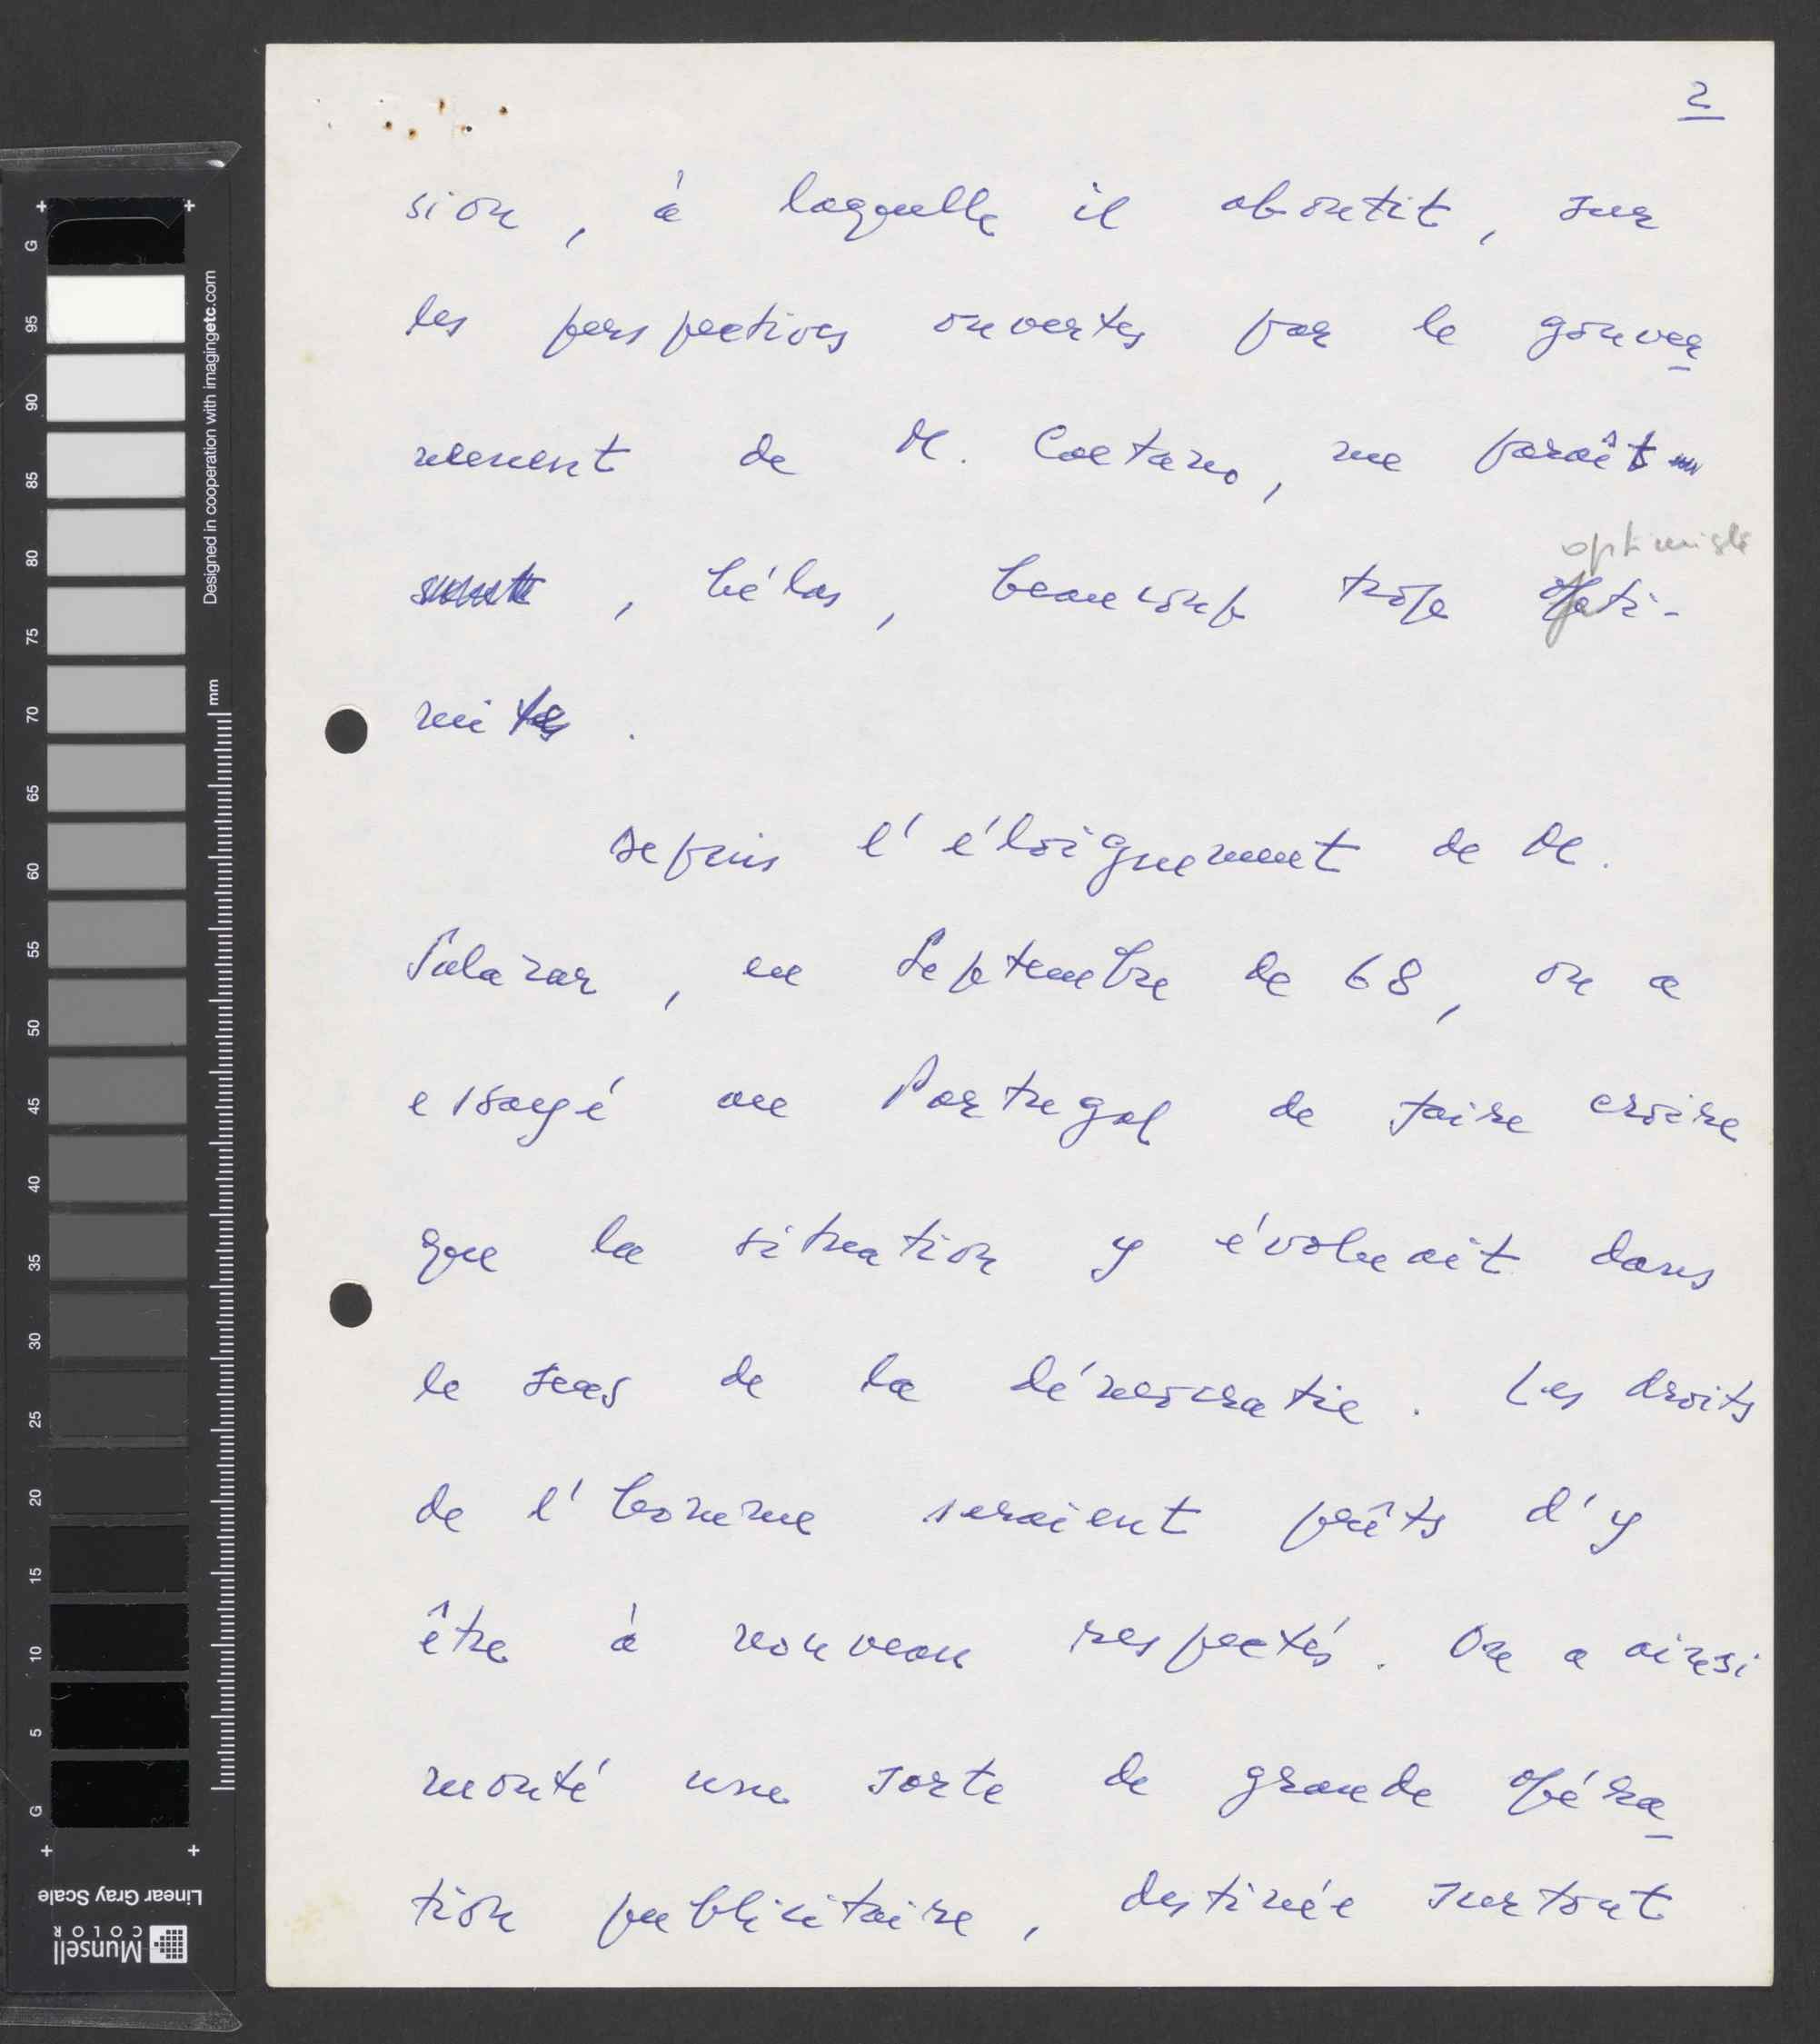 2
sion, à laquelle il aboutit, sur
les perspectives ouvertes par le gouver
nement de M. Caetano, me paraît
, hélas, beaucoup trop opti-
optimiste
mi
Depuis l'éloignement de M.
Salazar, en Septembre de 68, on a
essayé au Portugal de faire croire
que la situation y évoluait dans
le sens de la démocratie. Les droits
de l'homme seraient prêts d'y
être à nouveau respectés. On a ainsi
monté une sorte de grande opéra
tion publicitaire, destinée surtout
G
95
90
85
80
75
70
65
60
55
50
45
40
35
30
25
20
15
10
5
G
Designed in cooperation with imagingetc.com
mm
Linear Gray Scale
Munsell
COLOR